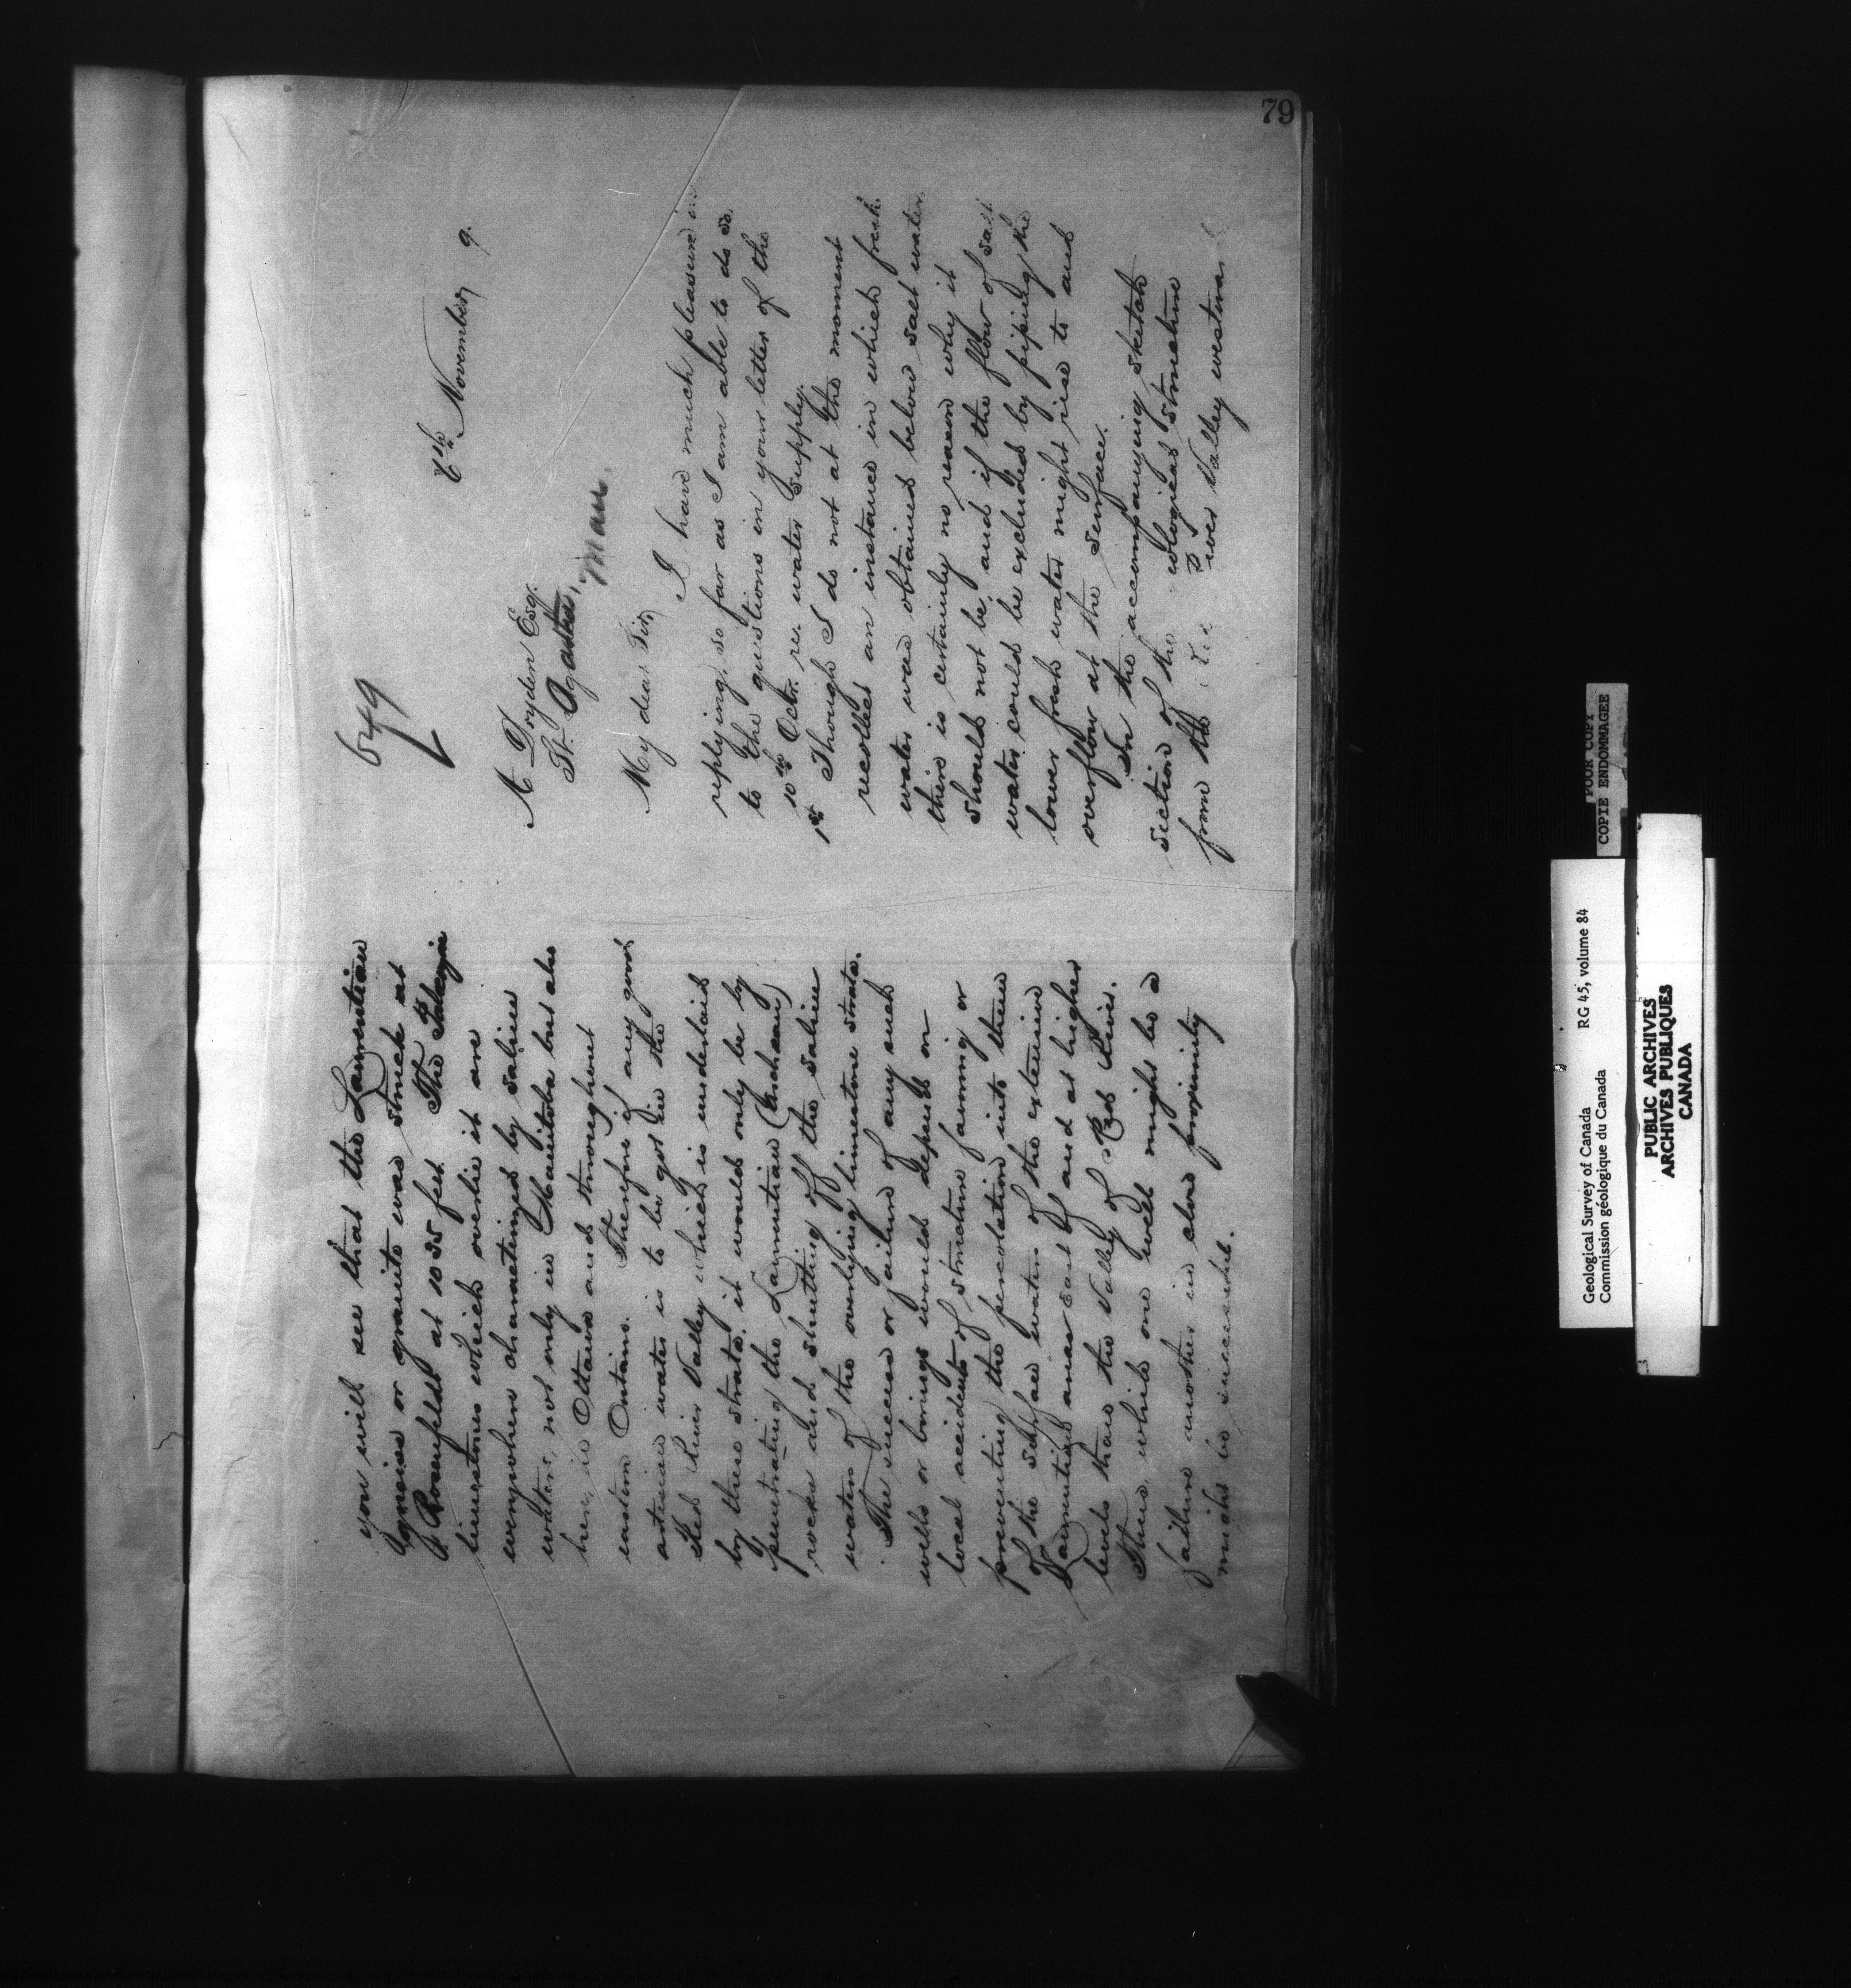 79
649
6th November 9.
A Dryden Esq.
St. Agathe, Man.
My dear Sir,
I have much pleasure in
replying, so far as I am able to do so.
to the questions in your letter of the
10th Octr. re. water supply.
1st Though I do not at the moment
recollect an instance in which fresh.
water was obtained below salt water,
there is certainly no reason why it
should not be, and if the flow of salt
water could be excluded by piping the
lower fresh water might rise to and
overflow at the surface.
In the accompanying sketch
section of the geological structure
from the River Valley westward
you will see that the Laurentian
gneiss or granite was struck at
Rosenfeldt at 1035 feet. The
limestones which overlie it are
everywhere charactirized by saline
waters, not only in Manitoba but also
here, in Ottawa and throughout
eastern Ontario. Therefore if any good
artesian water is to be got in the
Red River Valley which is underlaid
by these strata, it would only be by
penetrating the Laurentian (Archaean)
rocks and shutting off the saline
waters of the overlying limestone strata.
The success or failure of any such
wells or borings would depend on
local accidents of structure favoring or
preventing the percolation into them
of the surface waters of the extensive
Laurentian areas East of and at higher
levels than the Valley of Red River.
Thus while one well might be a
failure another in close proximity
might be successful.
POOR COPY
COPIE ENDOMMAGEE
Geological Survey of Canada RG 45, volume 84
Commission géologique du Canada
PUBLIC ARCHIVES
ARCHIVES PUBLIQUES
CANADA